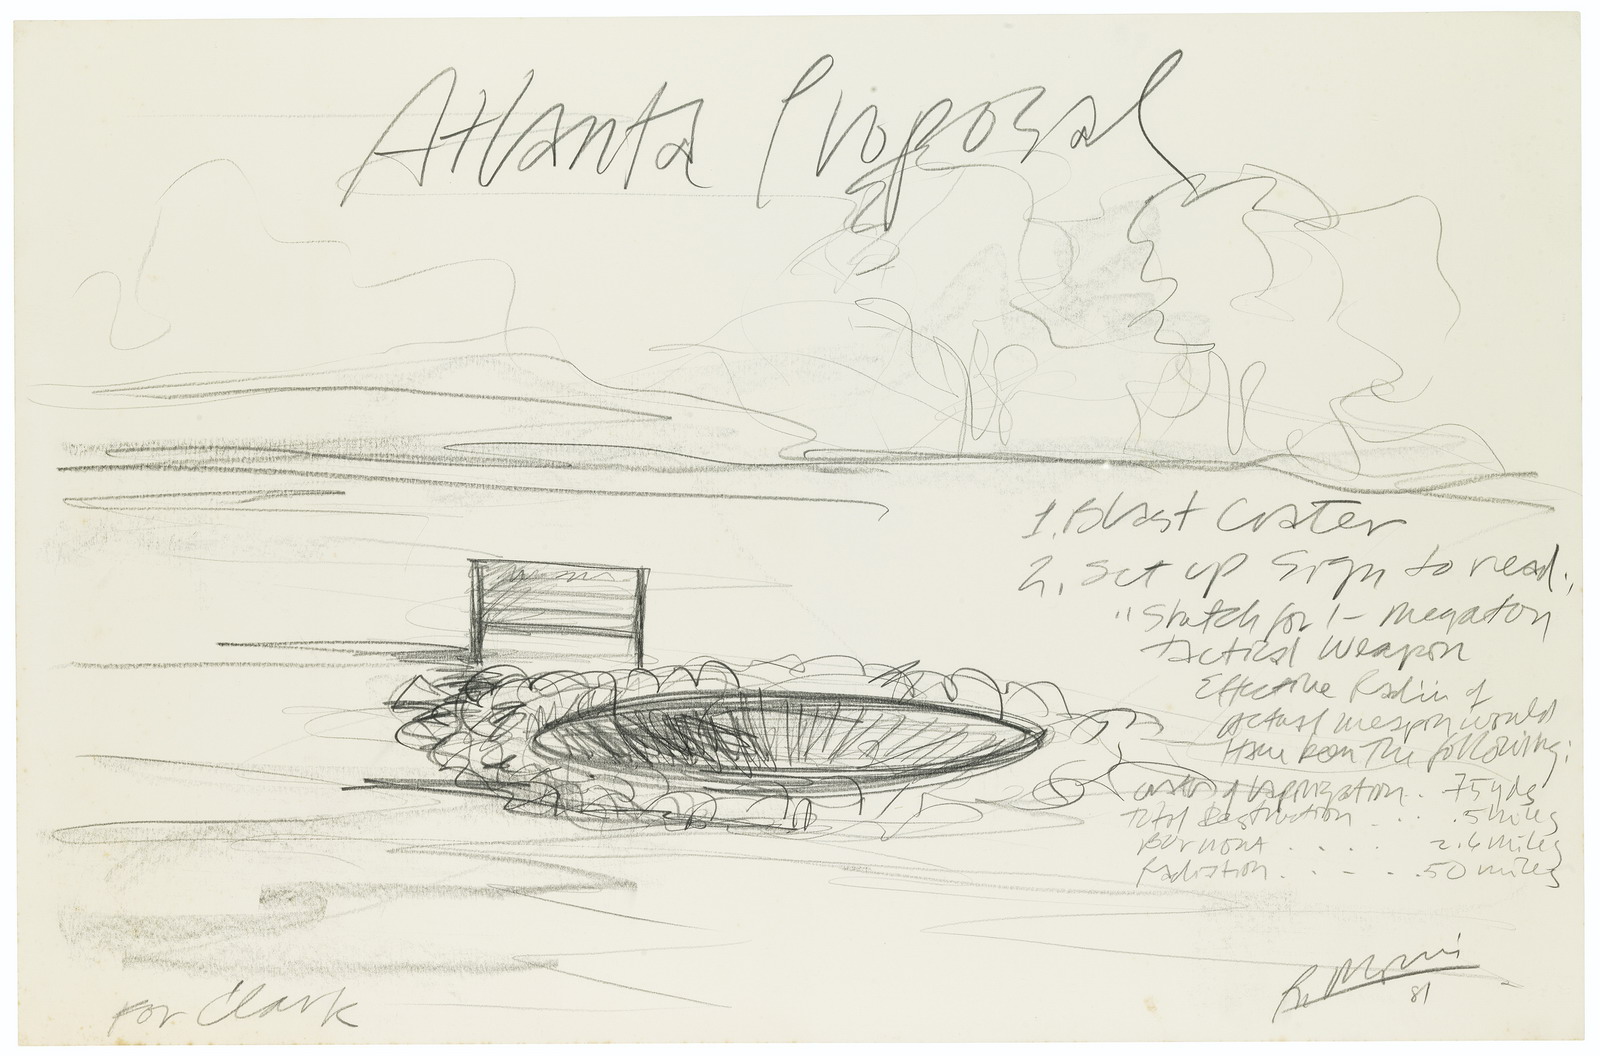 Atlanta Proposal
1. Blast Crater
2. Set up Sign to read:
"Sketch for 1-Megaton
Tactical Weapon
Effective Radii of
actual weapon would
Have been The following:
of Vaporization.. 75 yds
Total Destruction .... .5 miles
Burnout .... 2.6 miles
Radiation. . - - . .50 miles
R. Morris
81
For Clark